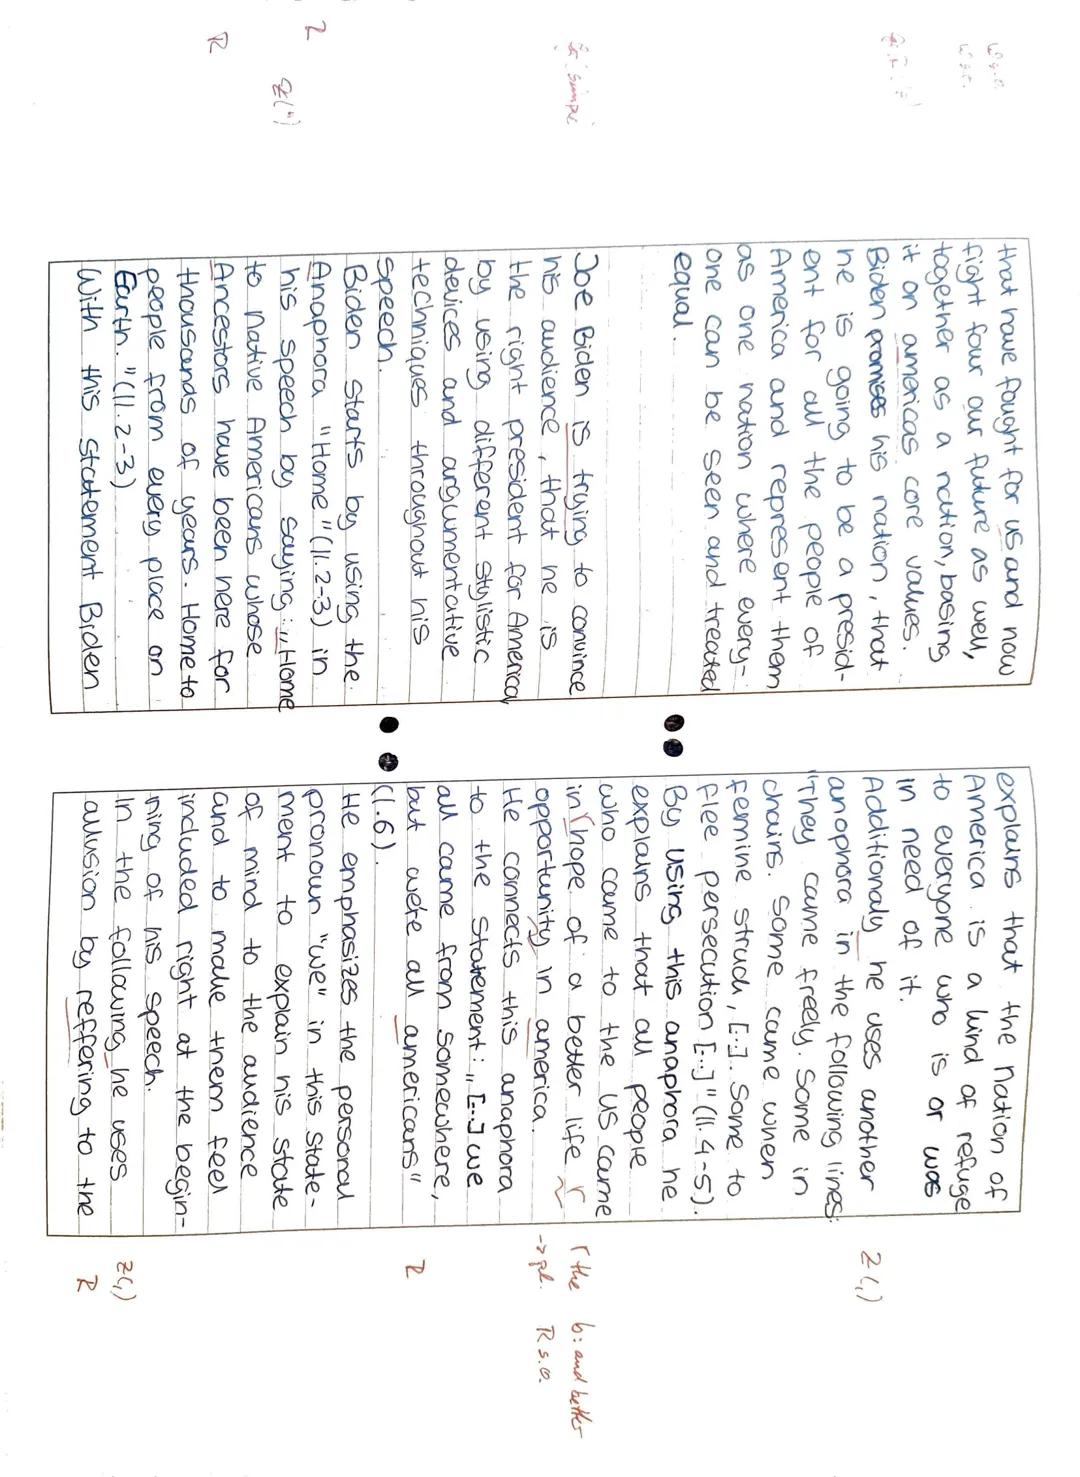 that have fought for us and now
fight four our future as well,
together as a nation, basing
it on americas core values.
Biden promises his nation, that
he is going to be a presid-
ent for all the people of
America and represent them
as one nation where every-
one can be seen and treated
equal.
Joe Biden is trying to convince
his audience, that he is
the right president for America,
by using different stylistic
devices and argumentative
techniques throughout his
speech.
Biden starts by using the
Anaphora "Home" (ll. 2-3) in
his speech by saying: „Home
to native Americans whose
Ancestors have been here for
thousands of years. Home to
people from every place on
Earth." (ll. 2-3)
With this statement Biden
R
explains that the nation of
America is a kind of refuge
to everyone who is or was
in need of it.
Additionaly he uses another
anaphora in the following lines:
"They came freely. Some in
chains. Some came when
femine struck, [...]. Some to
flee persecution [...]" (ll. 4-5).
By using this anaphora he
explains that all people
who came to the US came
in hope of a better life
opportunity in america.
He connects this anaphora
to the statement: „[...] we
all came from somewhere,
but were all americans"
(l. 6).
He emphasizes the personal
pronoun "we" in this state-
ment to explain his state
of mind to the audience
and to make them feel
included right at the begin-
ning of his speech.
In the following he uses
allusion by reffering to the
Z(,)
the b: and better
R s.o.
Z(,)
R